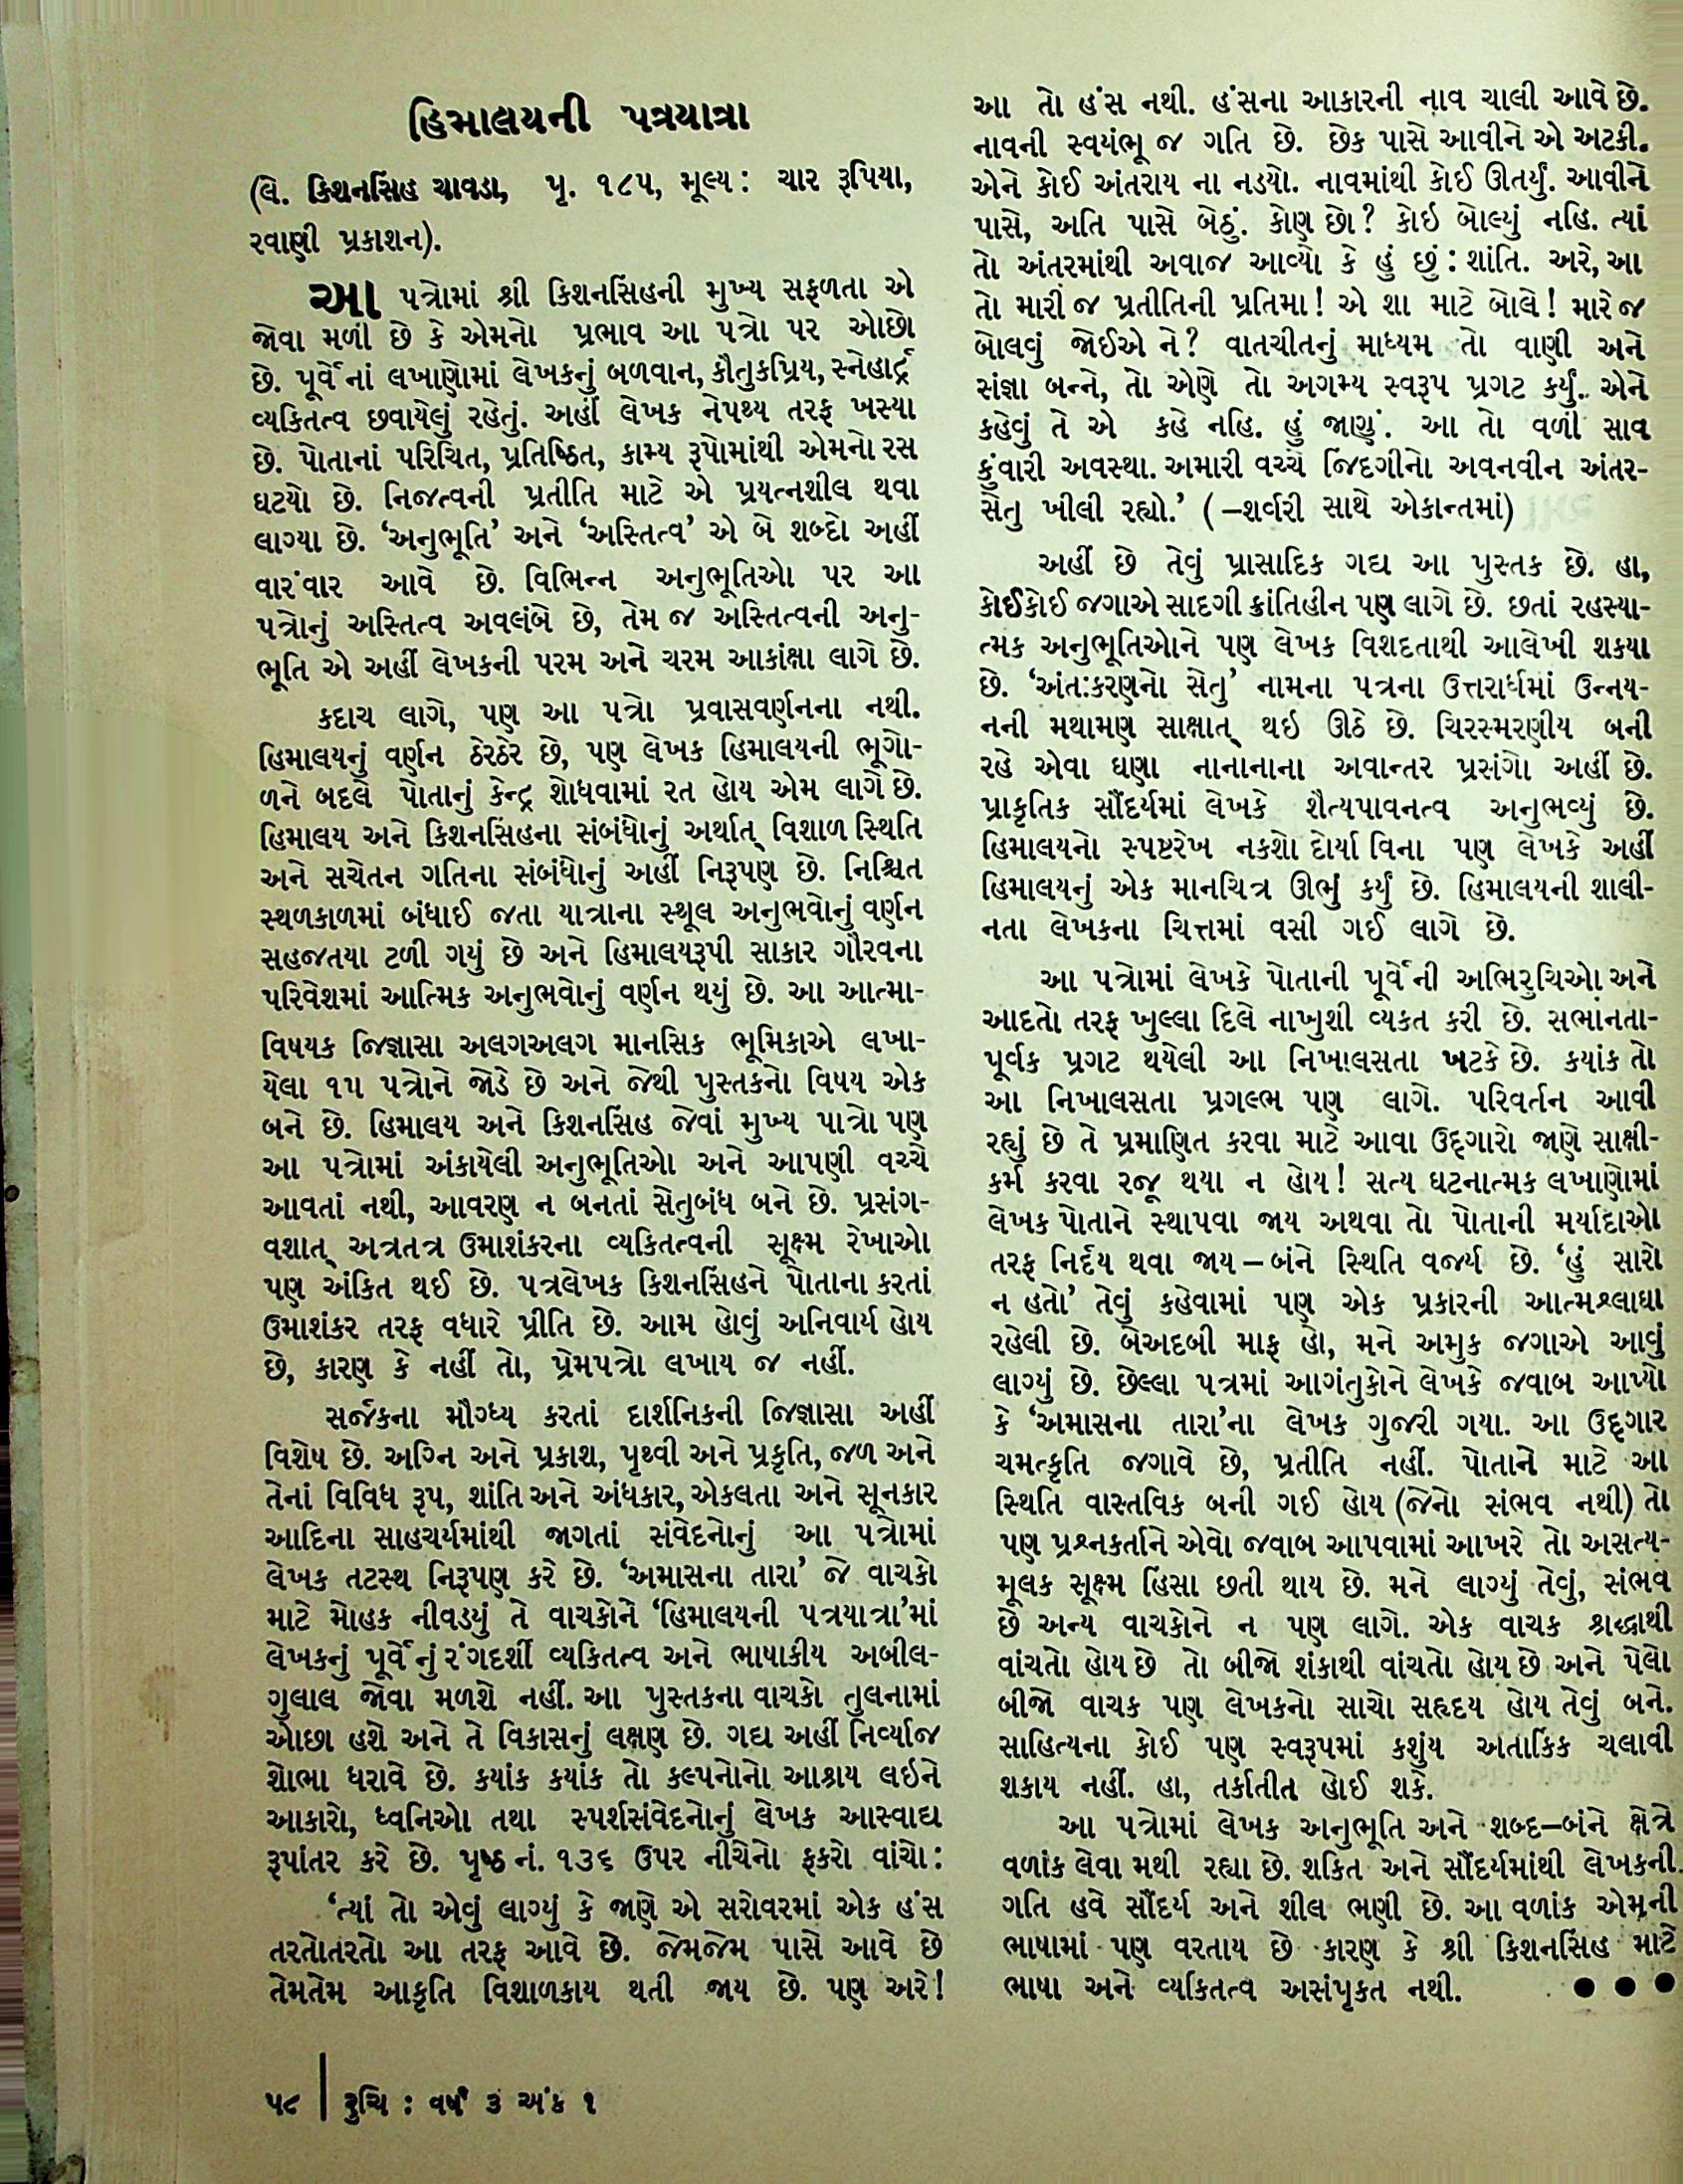 હિમાલયની પત્રયાત્રા
(લે. કિશનસિંહ ચાવડા, પૃ. ૧૮૫, મૂલ્ય: ચાર રૂપિયા,
રવાણી પ્રકાશન).
આ પત્રોમાં શ્રી કિશનસિંહની મુખ્ય સફળતા એ
જોવા મળી છે કે એમનો પ્રભાવ આ પત્રો પર ઓછો
છે. પૂર્વેનાં લખાણોમાં લેખકનું બળવાન, કૌતુકપ્રિય, સ્નેહાર્દ્ર
વ્યકિતત્વ છવાયેલું રહેતું. અહીં લેખક નેપથ્ય તરફ ખસ્યા
છે. પોતાનાં પરિચિત, પ્રતિષ્ઠિત, કામ્ય રૂપોમાંથી એમનો રસ
ઘટયો છે. નિજત્વની પ્રતીતિ માટે એ પ્રયત્નશીલ થવા
લાગ્યા છે. ‘અનુભૂતિ’ અને ‘અસ્તિત્વ’ એ બે શબ્દો અહીં
વારંવાર આવે છે. વિભિન્ન અનુભૂતિઓ પર આ
પત્રોનું અસ્તિત્વ અવલંબે છે, તેમ જ અસ્તિત્વની અનુ-
ભૂતિ એ અહીં લેખકની પરમ અને ચરમ આકાંક્ષા લાગે છે.
કદાચ લાગે, પણ આ પત્રો પ્રવાસવર્ણનના નથી.
હિમાલયનું વર્ણન ઠેરઠેર છે, પણ લેખક હિમાલયની ભૂગો-
ળને બદલે પોતાનું કેન્દ્ર શોધવામાં રત હોય એમ લાગે છે.
હિમાલય અને કિશનસિંહના સંબંધોનું અર્થાત્ વિશાળ સ્થિતિ
અને સચેતન ગતિના સંબંધોનું અહીં નિરૂપણ છે. નિશ્ચિત
સ્થળકાળમાં બંધાઈ જતા યાત્રાના સ્થૂલ અનુભવોનું વર્ણન
સહજતયા ટળી ગયું છે અને હિમાલયરૂપી સાકાર ગૌરવના
પરિવેશમાં આત્મિક અનુભવોનું વર્ણન થયું છે. આ આત્મા-
વિષયક જિજ્ઞાસા અલગઅલગ માનસિક ભૂમિકાએ લખા-
યેલા ૧૫ પત્રોને જોડે છે અને જેથી પુસ્તકનો વિષય એક
બને છે. હિમાલય અને કિશનસિંહ જેવાં મુખ્ય પાત્રો પણ
આ પત્રોમાં અંકાયેલી અનુભૂતિઓ અને આપણી વચ્ચે
આવતાં નથી, આવરણ ન બનતાં સેતુબંધ બને છે. પ્રસંગ-
વશાત્ અત્રતત્ર ઉમાશંકરના વ્યકિતત્વની સૂક્ષ્મ રેખાઓ
પણ અંકિત થઈ છે. પત્રલેખક કિશનસિંહને પોતાના કરતાં
ઉમાશંકર તરફ વધારે પ્રીતિ છે. આમ હોવું અનિવાર્ય હોય
છે, કારણ કે નહીં તો, પ્રેમપત્રો લખાય જ નહીં.
સર્જકના મૌગ્ધ્ય કરતાં દાર્શનિકની જિજ્ઞાસા અહીં
વિશેષ છે. અગ્નિ અને પ્રકાશ, પૃથ્વી અને પ્રકૃતિ, જળ અને
તેનાં વિવિધ રૂપ, શાંતિ અને અંધકાર, એકલતા અને સૂનકાર
આદિના સાહચર્યમાંથી જાગતાં સંવેદનોનું આ પત્રોમાં
લેખક તટસ્થ નિરૂપણ કરે છે. ‘અમાસના તારા’ જે વાચકો
માટે મોહક નીવડયું તે વાચકોને ‘હિમાલયની પત્રયાત્રા’માં
લેખકનું પૂર્વેનું રંગદર્શી વ્યકિતત્વ અને ભાષાકીય અબીલ-
ગુલાલ જોવા મળશે નહીં. આ પુસ્તકના વાચકો તુલનામાં
ઓછા હશે અને તે વિકાસનું લક્ષણ છે. ગદ્ય અહીં નિર્વ્યાજ
શોભા ધરાવે છે. કયાંક કયાંક તો કલ્પનોનો આશ્રય લઇને
આકારો, ધ્વનિઓ તથા સ્પર્શસંવેદનોનું લેખક આસ્વાદ્ય
રૂપાંતર કરે છે. પૃષ્ઠ નં. ૧૩૬ ઉપર નીચેનો ફકરો વાંચો:
‘ત્યાં તો એવું લાગ્યું કે જાણે એ સરોવરમાં એક હંસ
તરતોતરતો આ તરફ આવે છે. જેમજેમ પાસે આવે છે
તેમતેમ આકૃતિ વિશાળકાય થતી જાય છે. પણ અરે!
આ તો હંસ નથી. હંસના આકારની નાવ ચાલી આવે છે.
નાવની સ્વયંભૂ જ ગતિ છે. છેક પાસે આવીને એ અટકી.
એને કોઈ અંતરાય ના નડયો. નાવમાંથી કોઈ ઊતર્યું. આવીને
પાસે, અતિ પાસે બેઠું. કોણ છો? કોઇ બોલ્યું નહિ. ત્યાં
તો અંતરમાંથી અવાજ આવ્યો કે હું છું: શાંતિ. અરે, આ
તો મારી જ પ્રતીતિની પ્રતિમા! એ શા માટે બોલે! મારે જ
બોલવું જોઈએ ને? વાતચીતનું માધ્યમ તો વાણી અને
સંજ્ઞા બન્ને, તો એણે તો અગમ્ય સ્વરૂપ પ્રગટ કર્યું. એને
કહેવું તે એ કહે નહિ. હું જાણું. આ તો વળી સાવ
કુંવારી અવસ્થા. અમારી વચ્ચે જિંદગીનો અવનવીન અંતર-
સેતુ ખીલી રહ્યો.’ (–શર્વરી સાથે એકાન્તમાં)
અહીં છે તેવું પ્રાસાદિક ગદ્ય આ પુસ્તક છે. હા,
કોઈકોઈ જગાએ સાદગી ક્રાંતિહીન પણ લાગે છે. છતાં રહસ્યા-
ત્મક અનુભૂતિઓને પણ લેખક વિશદતાથી આલેખી શકયા
છે. ‘અંતઃકરણનો સેતુ’ નામના પત્રના ઉત્તરાર્ધમાં ઉન્નય-
નની મથામણ સાક્ષાત્ થઇ ઊઠે છે. ચિરસ્મરણીય બની
રહે એવા ઘણા નાનાનાના અવાન્તર પ્રસંગો અહીં છે.
પ્રાકૃતિક સૌંદર્યમાં લેખકે શૈત્યપાવનત્વ અનુભવ્યું છે.
હિમાલયનો સ્પષ્ટરેખ નકશો દોર્યા વિના પણ લેખકે અહીં
હિમાલયનું એક માનચિત્ર ઊભું કર્યું છે. હિમાલયની શાલી-
નતા લેખકના ચિત્તમાં વસી ગઈ લાગે છે.
આ પત્રોમાં લેખકે પોતાની પૂર્વેની અભિરુચિઓ અને
આદતો તરફ ખુલ્લા દિલે નાખુશી વ્યકત કરી છે. સભાનતા-
પૂર્વક પ્રગટ થયેલી આ નિખાલસતા ખટકે છે. કયાંક તો
આ નિખાલસતા પ્રગલ્ભ પણ લાગે. પરિવર્તન આવી
રહ્યું છે તે પ્રમાણિત કરવા માટે આવા ઉદ્ગારો જાણે સાક્ષી-
કર્મ કરવા રજૂ થયા ન હોય! સત્ય ઘટનાત્મક લખાણોમાં
લેખક પોતાને સ્થાપવા જાય અથવા તો પોતાની મર્યાદાઓ
તરફ નિર્દય થવા જાય – બંને સ્થિતિ વર્જ્ય છે. ‘હું સારો
ન હતો’ તેવું કહેવામાં પણ એક પ્રકારની આત્મશ્લાઘા
રહેલી છે. બેઅદબી માફ હો, મને અમુક જગાએ આવું
લાગ્યું છે. છેલ્લા પત્રમાં આગંતુકોને લેખકે જવાબ આપ્યો
કે ‘અમાસના તારા’ના લેખક ગુજરી ગયા. આ ઉદ્ગાર
ચમત્કૃતિ જગાવે છે, પ્રતીતિ નહીં. પોતાને માટે આ
સ્થિતિ વાસ્તવિક બની ગઈ હોય (જેનો સંભવ નથી) તો
પણ પ્રશ્નકર્તાને એવો જવાબ આપવામાં આખરે તો અસત્ય-
મૂલક સૂક્ષ્મ હિંસા છતી થાય છે. મને લાગ્યું તેવું, સંભવ
છે અન્ય વાચકોને ન પણ લાગે. એક વાચક શ્રદ્ધાથી
વાંચતો હોય છે તો બીજો શંકાથી વાંચતો હોય છે અને પેલો
બીજો વાચક પણ લેખકનો સાચો સહૃદય હોય તેવું બને.
સાહિત્યના કોઈ પણ સ્વરૂપમાં કશુંય અતાર્કિક ચલાવી
શકાય નહીં. હા, તર્કાતીત હોઈ શકે.
આ પત્રોમાં લેખક અનુભૂતિ અને શબ્દ–બંને ક્ષેત્રે
વળાંક લેવા મથી રહ્યા છે. શકિત અને સૌંદર્યમાંથી લેખકની
ગતિ હવે સૌંદર્ય અને શીલ ભણી છે. આ વળાંક એમની
ભાષામાં પણ વરતાય છે કારણ કે શ્રી કિશનસિંહ માટે
ભાષા અને વ્યકિતત્વ અસંપૃકત નથી. ●●●
૫૮ | રુચિ : વર્ષ ૩ અંક ૧